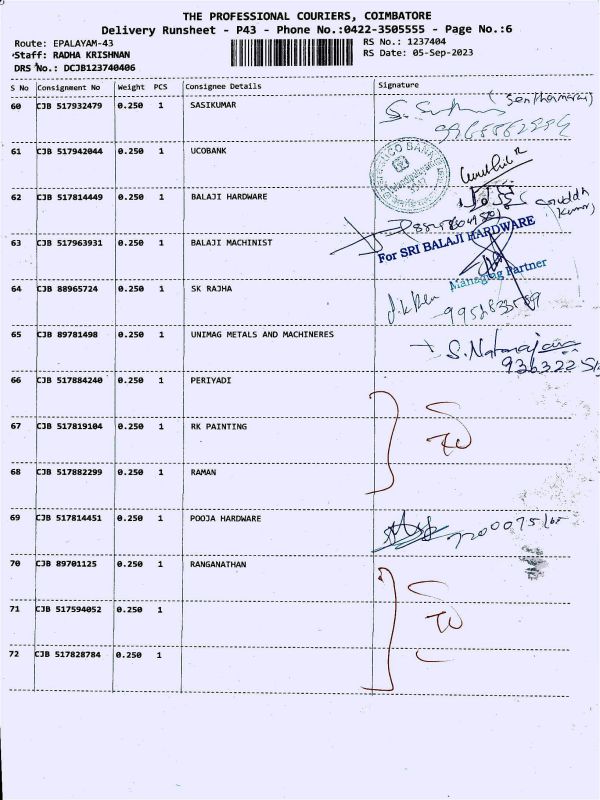 THE PROFESSIONAL COURIERS, COIMBATORE
Delivery Runsheet - P43 - Phone No.:0422-3505555 - Page No.:6
Route: EPALAYAM-43 RS No.: 1237404
Staff: RADHA KRISHNAN RS Date: 05-Sep-2023
DRS No.: DCJB123740406
S No Consignment No Weight PCS Consignee Details Signature
60 CJB 517932479 0.250 1 SASIKUMAR
61 CJB 517942044 0.250 1 UCOBANK
UCO BANK
62 CJB 517814449 0.250 1 BALAJI HARDWARE
For SRI BALAJI HARDWARE
63 CJB 517963931 0.250 1 BALAJI MACHINIST
Managing Partner
64 CJB 88965724 0.250 1 SK RAJHA
65 CJB 89781498 0.250 1 UNIMAG METALS AND MACHINERES S. Natarajan
66 CJB 517884240 0.250 1 PERIYADI
67 CJB 517819104 0.250 1 RK PAINTING
68 CJB 517882299 0.250 1 RAMAN
69 CJB 517814451 0.250 1 POOJA HARDWARE
70 CJB 89701125 0.250 1 RANGANATHAN
71 CJB 517594052 0.250 1
72 CJB 517828784 0.250 1